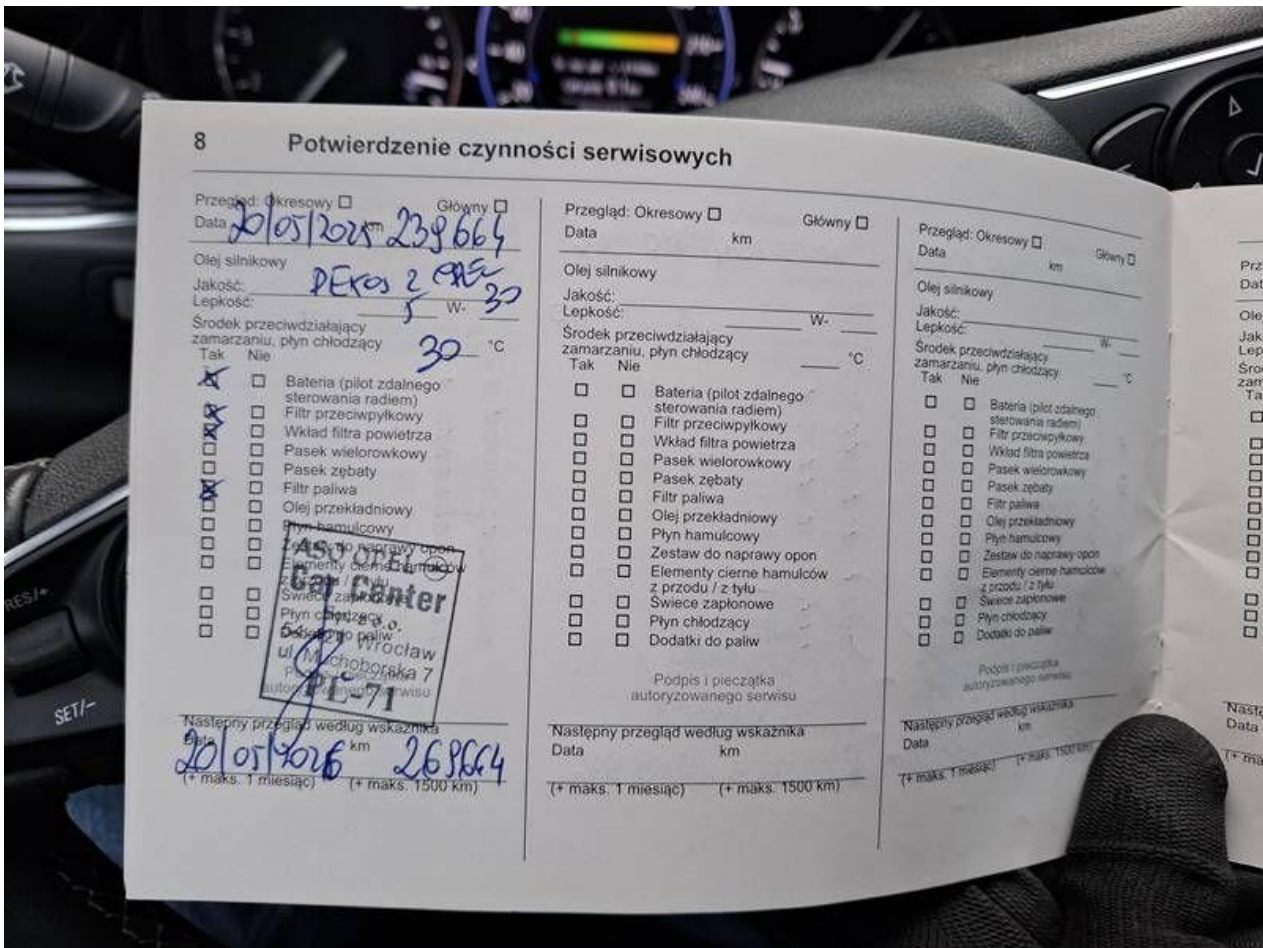 8 Potwierdzenie czynności serwisowych
Przegląd: Okresowy Główny
Data 20/05/2025 km 239664
Olej silnikowy
Jakość: DEXOS 2
Lepkość: 5 W- 30
Środek przeciwdziałający
zamarzaniu, płyn chłodzący 30 °C
Tak Nie
Bateria (pilot zdalnego
sterowania radiem)
Filtr przeciwpyłkowy
Wkład filtra powietrza
Pasek wielorowkowy
Pasek zębaty
Filtr paliwa
Olej przekładniowy
Płyn hamulcowy
Zestaw do naprawy opon
Elementy cierne hamulców
z przodu / z tyłu
Świece zapłonowe
Płyn chłodzący
Dodatki do paliw
ASO OPEL
Car Center
Sp. z o.o.
Wrocław
ul. Muchoborska 7
PL-71
Podpis i pieczątka
autoryzowanego serwisu
Następny przegląd według wskaźnika
Data 20/05/2026 km 269664
(+ maks. 1 miesiąc) (+ maks. 1500 km)
Przegląd: Okresowy Główny
Data km
Olej silnikowy
Jakość:
Lepkość: W-
Środek przeciwdziałający
zamarzaniu, płyn chłodzący °C
Tak Nie
Bateria (pilot zdalnego
sterowania radiem)
Filtr przeciwpyłkowy
Wkład filtra powietrza
Pasek wielorowkowy
Pasek zębaty
Filtr paliwa
Olej przekładniowy
Płyn hamulcowy
Zestaw do naprawy opon
Elementy cierne hamulców
z przodu / z tyłu
Świece zapłonowe
Płyn chłodzący
Dodatki do paliw
Podpis i pieczątka
autoryzowanego serwisu
Następny przegląd według wskaźnika
Data km
(+ maks. 1 miesiąc) (+ maks. 1500 km)
Przegląd: Okresowy Główny
Data km
Olej silnikowy
Jakość:
Lepkość: W-
Środek przeciwdziałający
zamarzaniu, płyn chłodzący °C
Tak Nie
Bateria (pilot zdalnego
sterowania radiem)
Filtr przeciwpyłkowy
Wkład filtra powietrza
Pasek wielorowkowy
Pasek zębaty
Filtr paliwa
Olej przekładniowy
Płyn hamulcowy
Zestaw do naprawy opon
Elementy cierne hamulców
z przodu / z tyłu
Świece zapłonowe
Płyn chłodzący
Dodatki do paliw
Podpis i pieczątka
autoryzowanego serwisu
Następny przegląd według wskaźnika
Data km
(+ maks. 1 miesiąc) (+ maks. 1500 km)
RES/+
SET/-